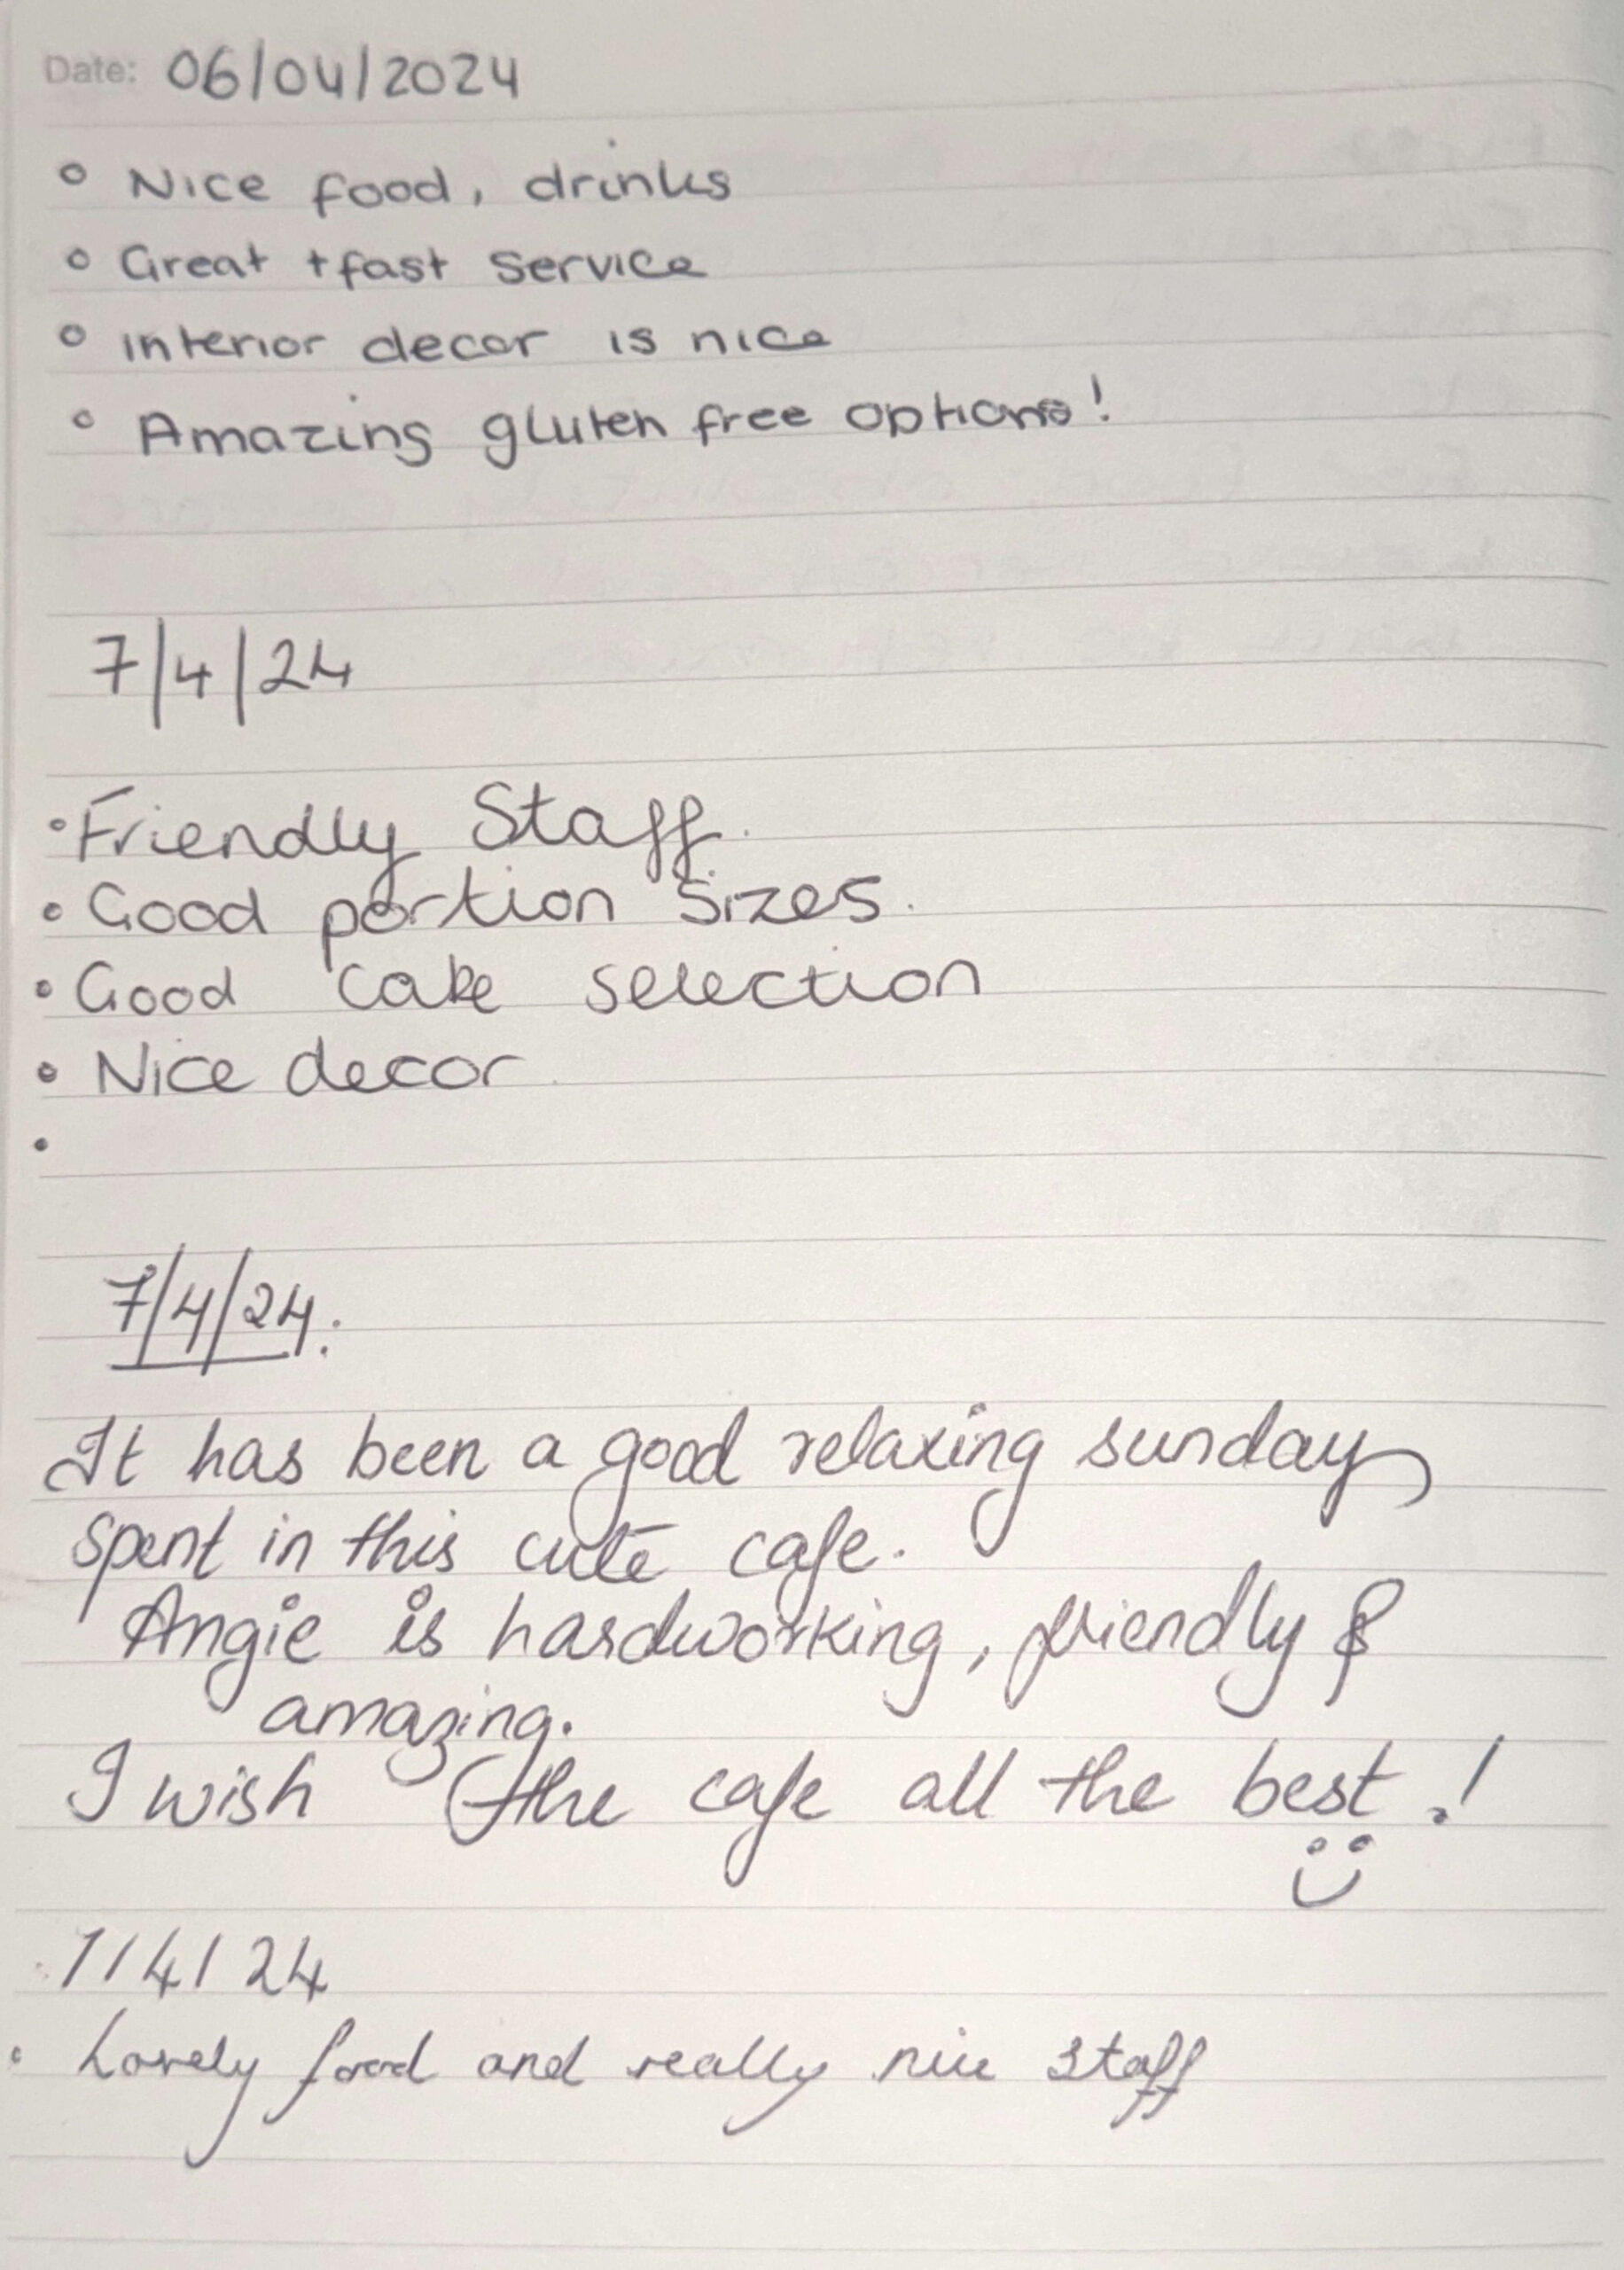 Date: 06/04/2024
° Nice food, drinks
° Great + fast service
° interior decor is nice
° Amazing gluten free options!
7/4/24
• Friendly Staff.
• Good portion sizes.
• Good cake selection
• Nice decor.
•
7/4/24:
It has been a good relaxing sunday
spent in this cute cafe.
Angie is hardworking, friendly &
amazing.
I wish the cafe all the best!
:)
7/4/24
• Lovely food and really nice staff